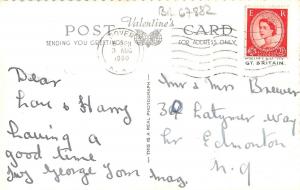 BL 67882
Valentine's
POST CARD
SENDING YOU GREETINGS
FOR ADDRESS ONLY
PM
3 AUG
1960
E R
GT. BRITAIN
THIS IS A REAL PHOTOGRAPH
Dear
Lou & Harry
Having a
good time
Ivy George Tom Mag.
Mr & Mrs Brewer
Latymer way
Lr Edmonton
N. 9